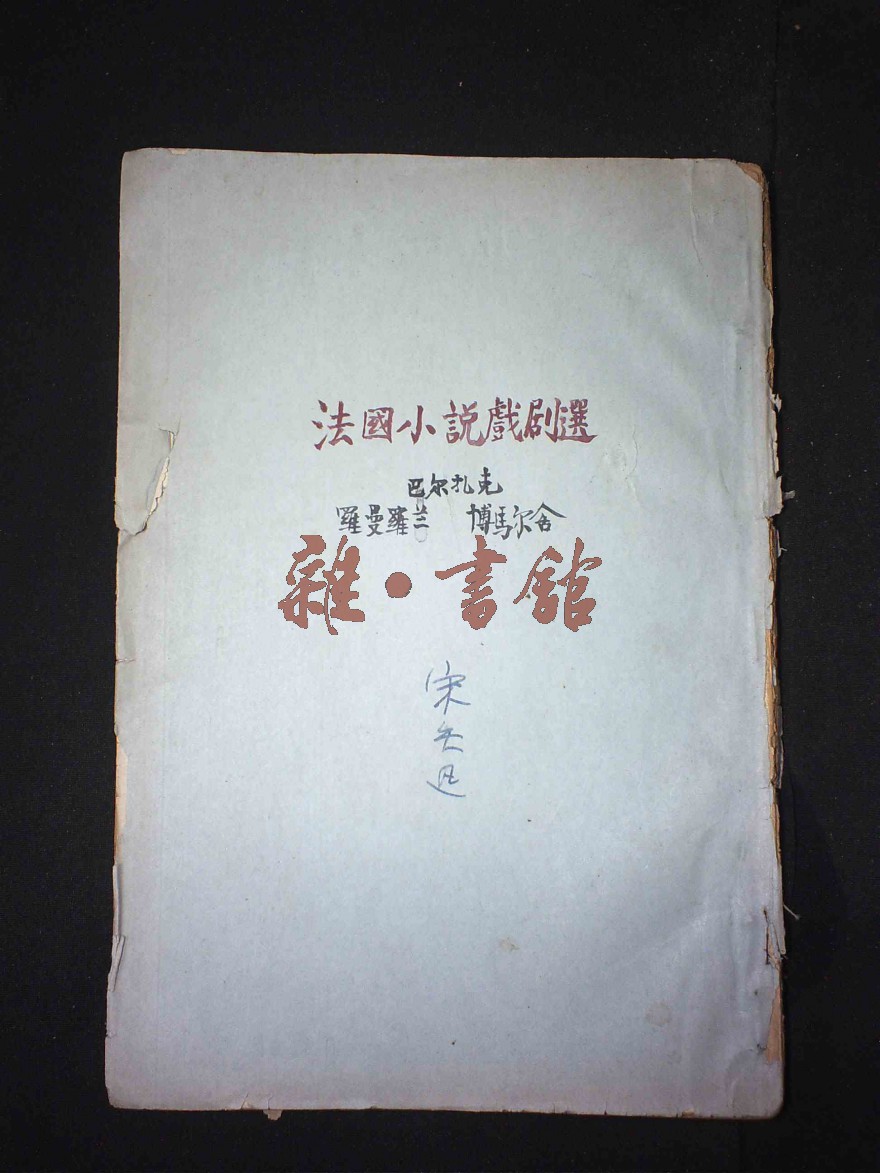 法國小説戲剧選
巴尔扎克
羅曼羅兰 博馬尔舍
雜·書館
宋